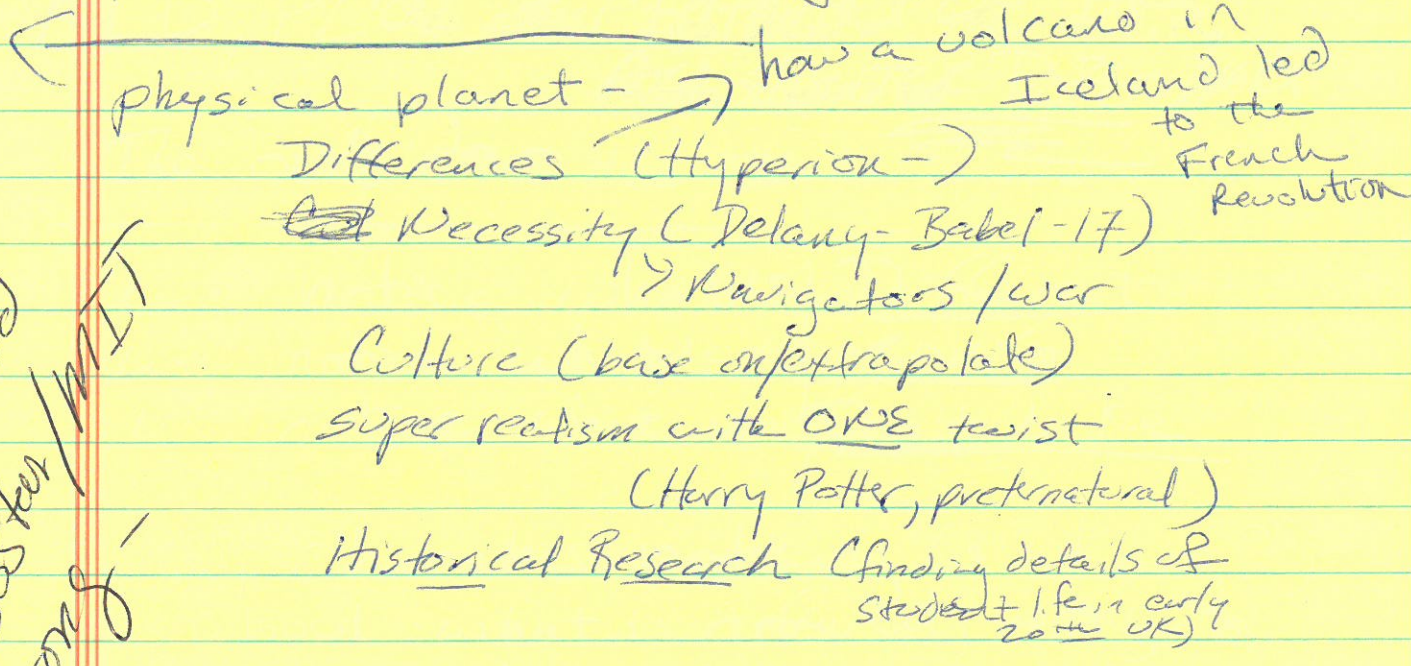 how a volcano in
Iceland led
to the
French
Revolution
physical planet -
Differences (Hyperion -)
Necessity (Delany - Babel-17)
Navigators / war
Culture (base on/extrapolate)
super realism with ONE twist
(Harry Potter, preternatural)
Historical Research (finding details of
student life in early
20th UK)
/MIT